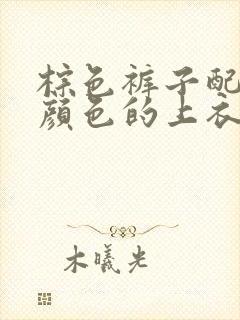 棕色裤子配
颜色的上衣
木曦光